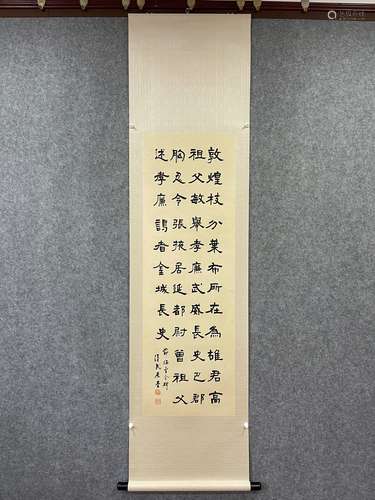 敦煌枝分葉布所在為雄君高
祖父敏舉孝廉武威長史巴郡
朐忍令張掖居延都尉曾祖父
述孝廉謁者金城長史
節臨曹全碑